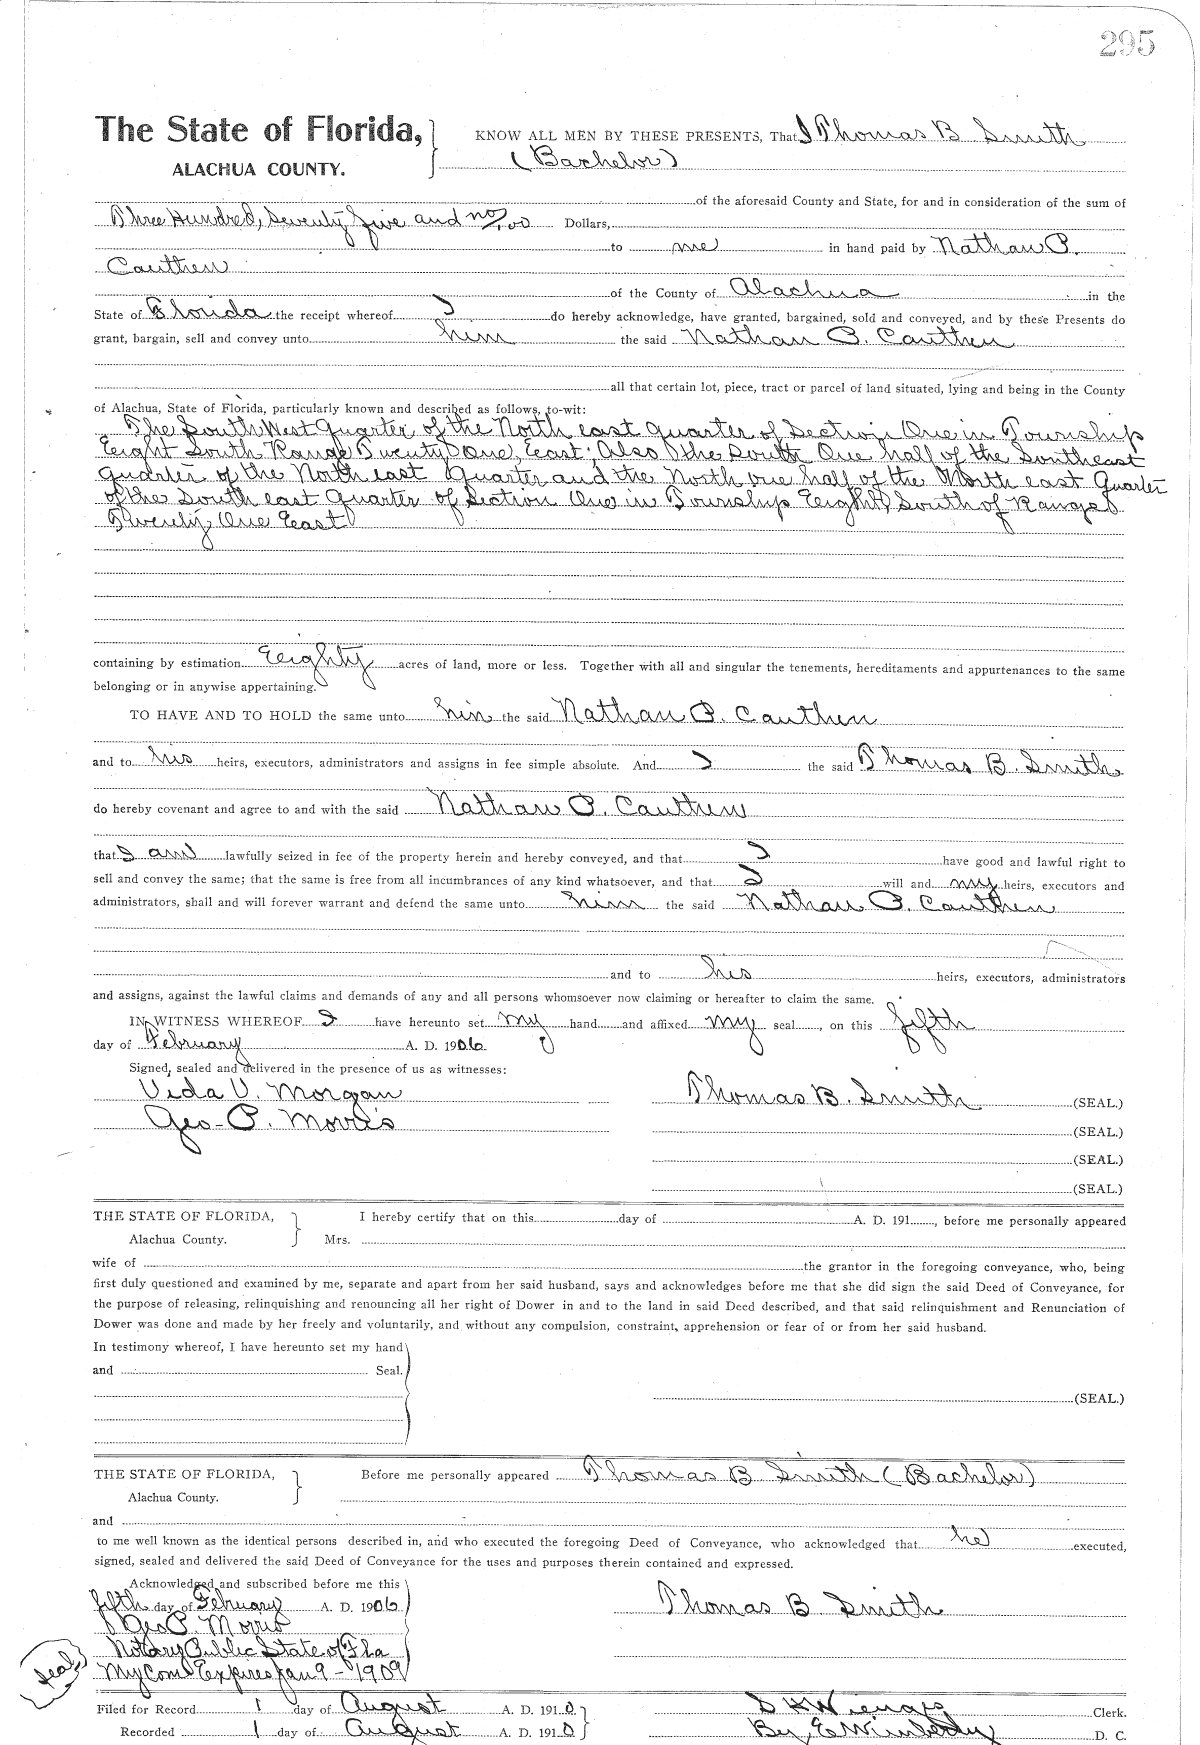 295
The State of Florida, KNOW ALL MEN BY THESE PRESENTS, That I Thomas B Smith
ALACHUA COUNTY. (Bachelor)
of the aforesaid County and State, for and in consideration of the sum of
Three Hundred, Seventy five and no/100 Dollars,
to me in hand paid by Nathan P.
Cauthen
of the County of Alachua in the
State of Florida the receipt whereof I do hereby acknowledge, have granted, bargained, sold and conveyed, and by these Presents do
grant, bargain, sell and convey unto him the said Nathan P. Cauthen
all that certain lot, piece, tract or parcel of land situated, lying and being in the County
of Alachua, State of Florida, particularly known and described as follows, to-wit:
The South West Quarter of the North east quarter of Section One in Township
Eeight South Range Twenty One, East; Also the South One half of the Southeast
quarter of the North east Quarter and the North one half of the North east Quarter
of the South east Quarter of Section One in Township Eeight, South of Range
Twenty One East
containing by estimation Eeighty acres of land, more or less. Together with all and singular the tenements, hereditaments and appurtenances to the same
belonging or in anywise appertaining.
TO HAVE AND TO HOLD the same unto him the said Nathan P. Cauthen
and to his heirs, executors, administrators and assigns in fee simple absolute. And I the said Thomas B. Smith
do hereby covenant and agree to and with the said Nathan P. Cauthen
that I am lawfully seized in fee of the property herein and hereby conveyed, and that I have good and lawful right to
sell and convey the same; that the same is free from all incumbrances of any kind whatsoever, and that I will and my heirs, executors and
administrators, shall and will forever warrant and defend the same unto him the said Nathan P. Cauthen
and to his heirs, executors, administrators
and assigns, against the lawful claims and demands of any and all persons whomsoever now claiming or hereafter to claim the same.
IN WITNESS WHEREOF I have hereunto set my hand and affixed my seal, on this fifth
day of February A. D. 1906
Signed, sealed and delivered in the presence of us as witnesses:
Vida V. Morgan Thomas B. Smith (SEAL.)
Geo. P. Morris (SEAL.)
(SEAL.)
(SEAL.)
THE STATE OF FLORIDA, I hereby certify that on this day of A. D. 191, before me personally appeared
Alachua County. Mrs.
wife of the grantor in the foregoing conveyance, who, being
first duly questioned and examined by me, separate and apart from her said husband, says and acknowledges before me that she did sign the said Deed of Conveyance, for
the purpose of releasing, relinquishing and renouncing all her right of Dower in and to the land in said Deed described, and that said relinquishment and Renunciation of
Dower was done and made by her freely and voluntarily, and without any compulsion, constraint, apprehension or fear of or from her said husband.
In testimony whereof, I have hereunto set my hand
and Seal.
(SEAL.)
THE STATE OF FLORIDA, Before me personally appeared Thomas B Smith (Bachelor)
Alachua County.
and
to me well known as the identical persons described in, and who executed the foregoing Deed of Conveyance, who acknowledged that he executed,
signed, sealed and delivered the said Deed of Conveyance for the uses and purposes therein contained and expressed.
Acknowledged and subscribed before me this
fifth day of February A. D. 1906 Thomas B Smith
Geo P. Morris
Notary Public State of Fla
Seal My Com Expires Jan 9-1909
Filed for Record 1 day of August A. D. 1910 S H Wienges Clerk.
Recorded 1 day of August A. D. 1910 By, E Wimberly D. C.